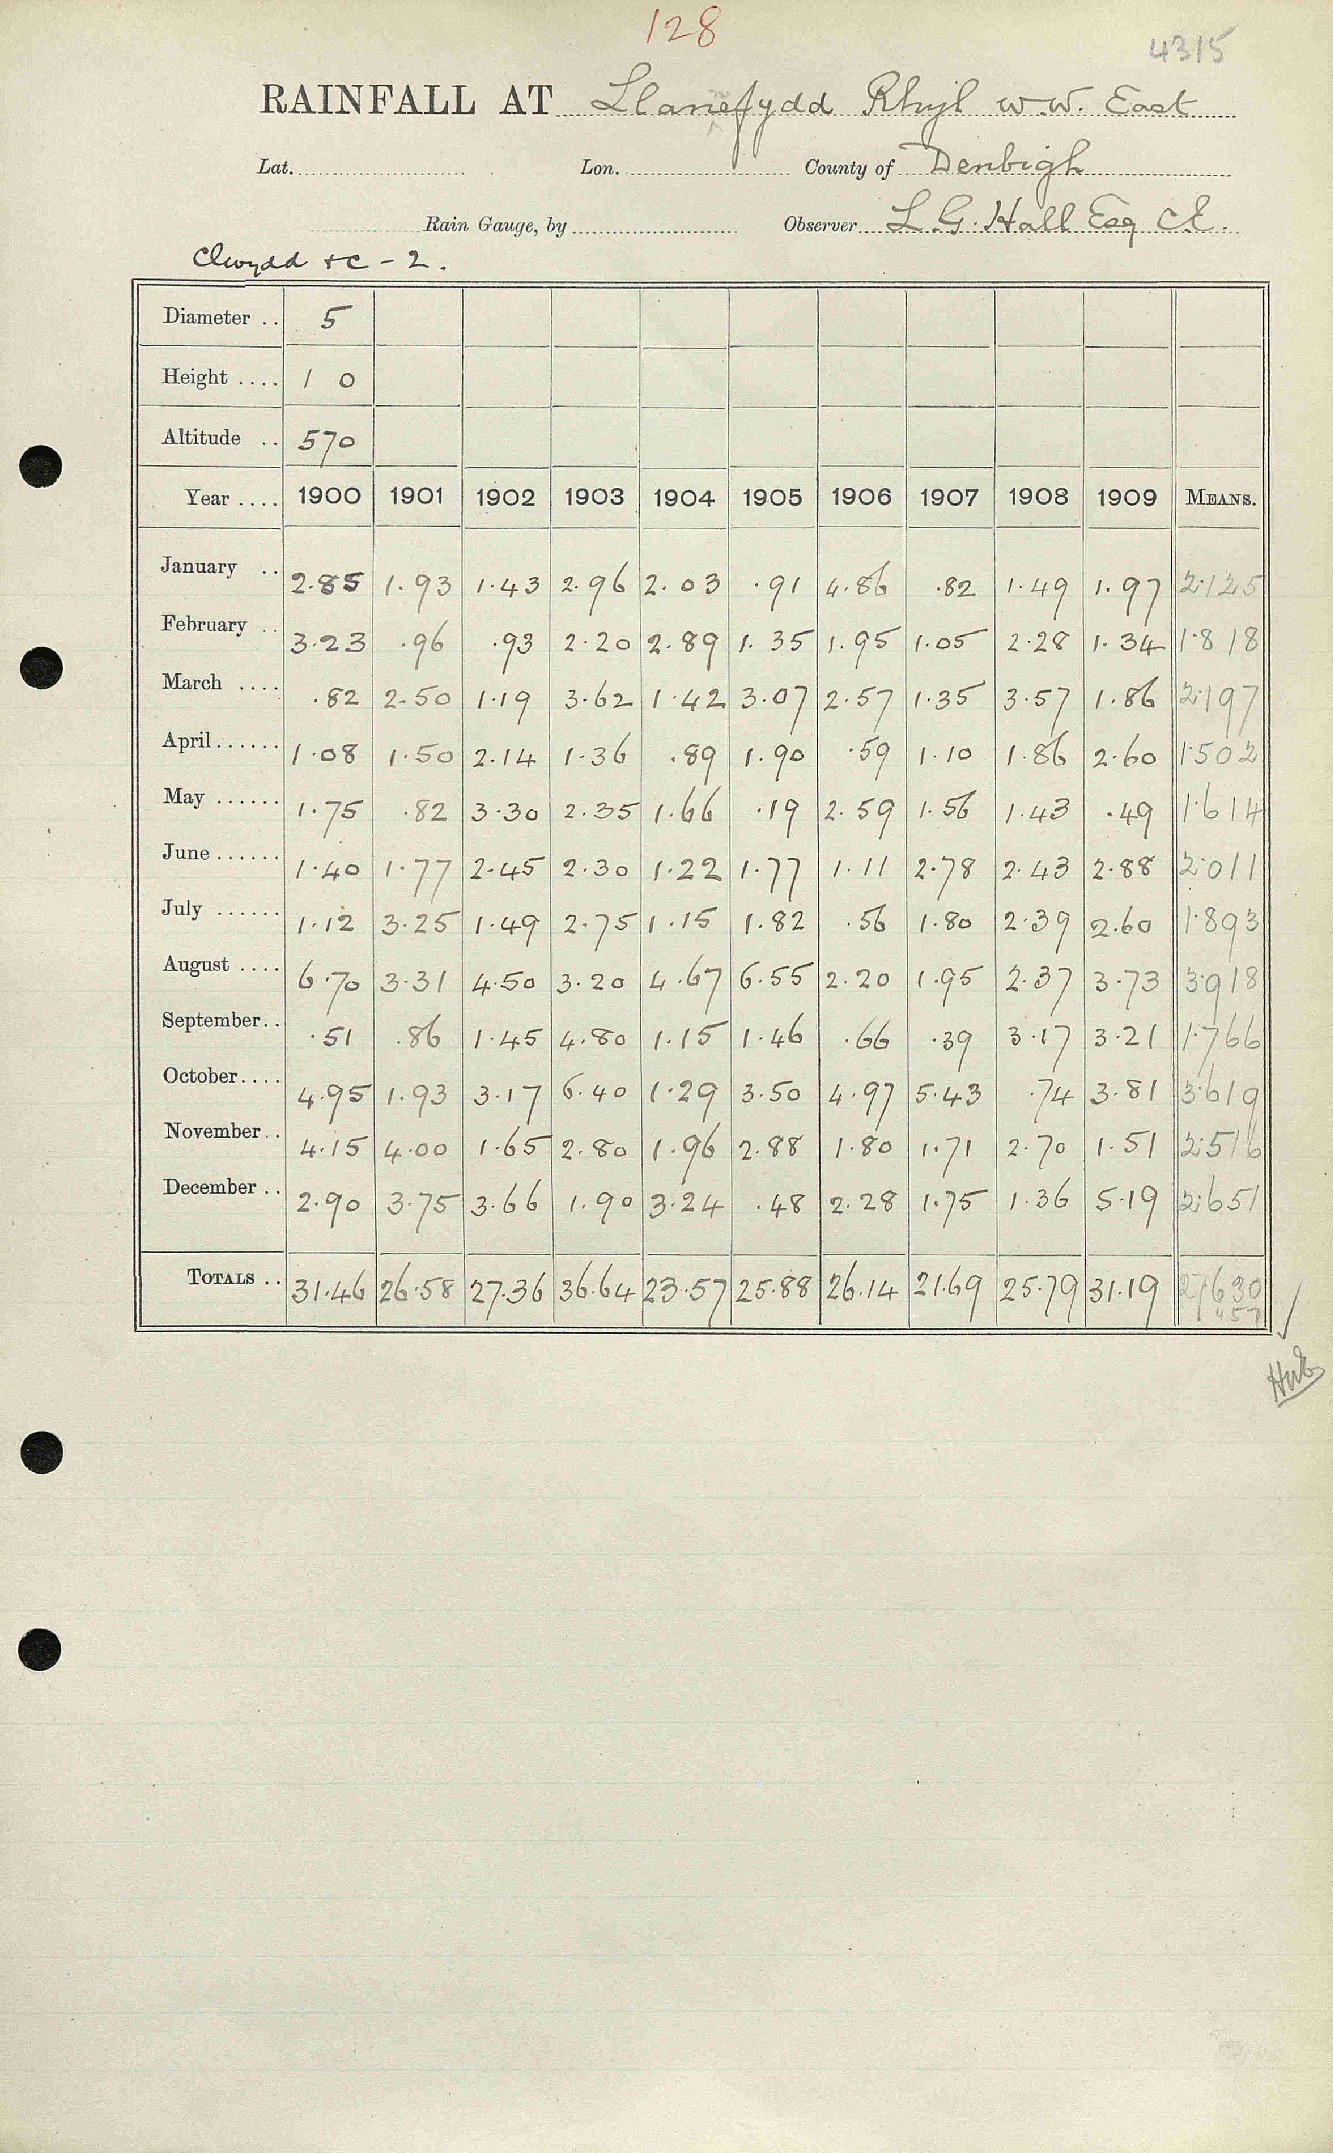 128
4315
RAINFALL AT Llanefydd Rhyl W.W. East
Lat. Lon. County of Denbigh
Rain Gauge, by Observer L. G. Hall Esq CE.
Clwydd &c - 2.
Diameter .. 5
Height .... 1 0
Altitude .. 570
Year .... 1900 1901 1902 1903 1904 1905 1906 1907 1908 1909 MEANS.
January .. 2.85 1.93 1.43 2.96 2.03 .91 4.86 .82 1.49 1.97 2.125
February .. 3.23 .96 .93 2.20 2.89 1.35 1.95 1.05 2.28 1.34 1.818
March .... .82 2.50 1.19 3.62 1.42 3.07 2.57 1.35 3.57 1.86 2.197
April...... 1.08 1.50 2.14 1.36 .89 1.90 .59 1.10 1.86 2.60 1.502
May ...... 1.75 .82 3.30 2.35 1.66 .19 2.59 1.56 1.43 .49 1.614
June ...... 1.40 1.77 2.45 2.30 1.22 1.77 1.11 2.78 2.43 2.88 2.011
July ...... 1.12 3.25 1.49 2.75 1.15 1.82 .56 1.80 2.39 2.60 1.893
August .... 6.70 3.31 4.50 3.20 4.67 6.55 2.20 1.95 2.37 3.73 3.918
September.. .51 .86 1.45 4.80 1.15 1.46 .66 .39 3.17 3.21 1.766
October.... 4.95 1.93 3.17 6.40 1.29 3.50 4.97 5.43 .74 3.81 3.619
November.. 4.15 4.00 1.65 2.80 1.96 2.88 1.80 1.71 2.70 1.51 2.516
December .. 2.90 3.75 3.66 1.90 3.24 .48 2.28 1.75 1.36 5.19 2.651
TOTALS .. 31.46 26.58 27.36 36.64 23.57 25.88 26.14 21.69 25.79 31.19 27.630